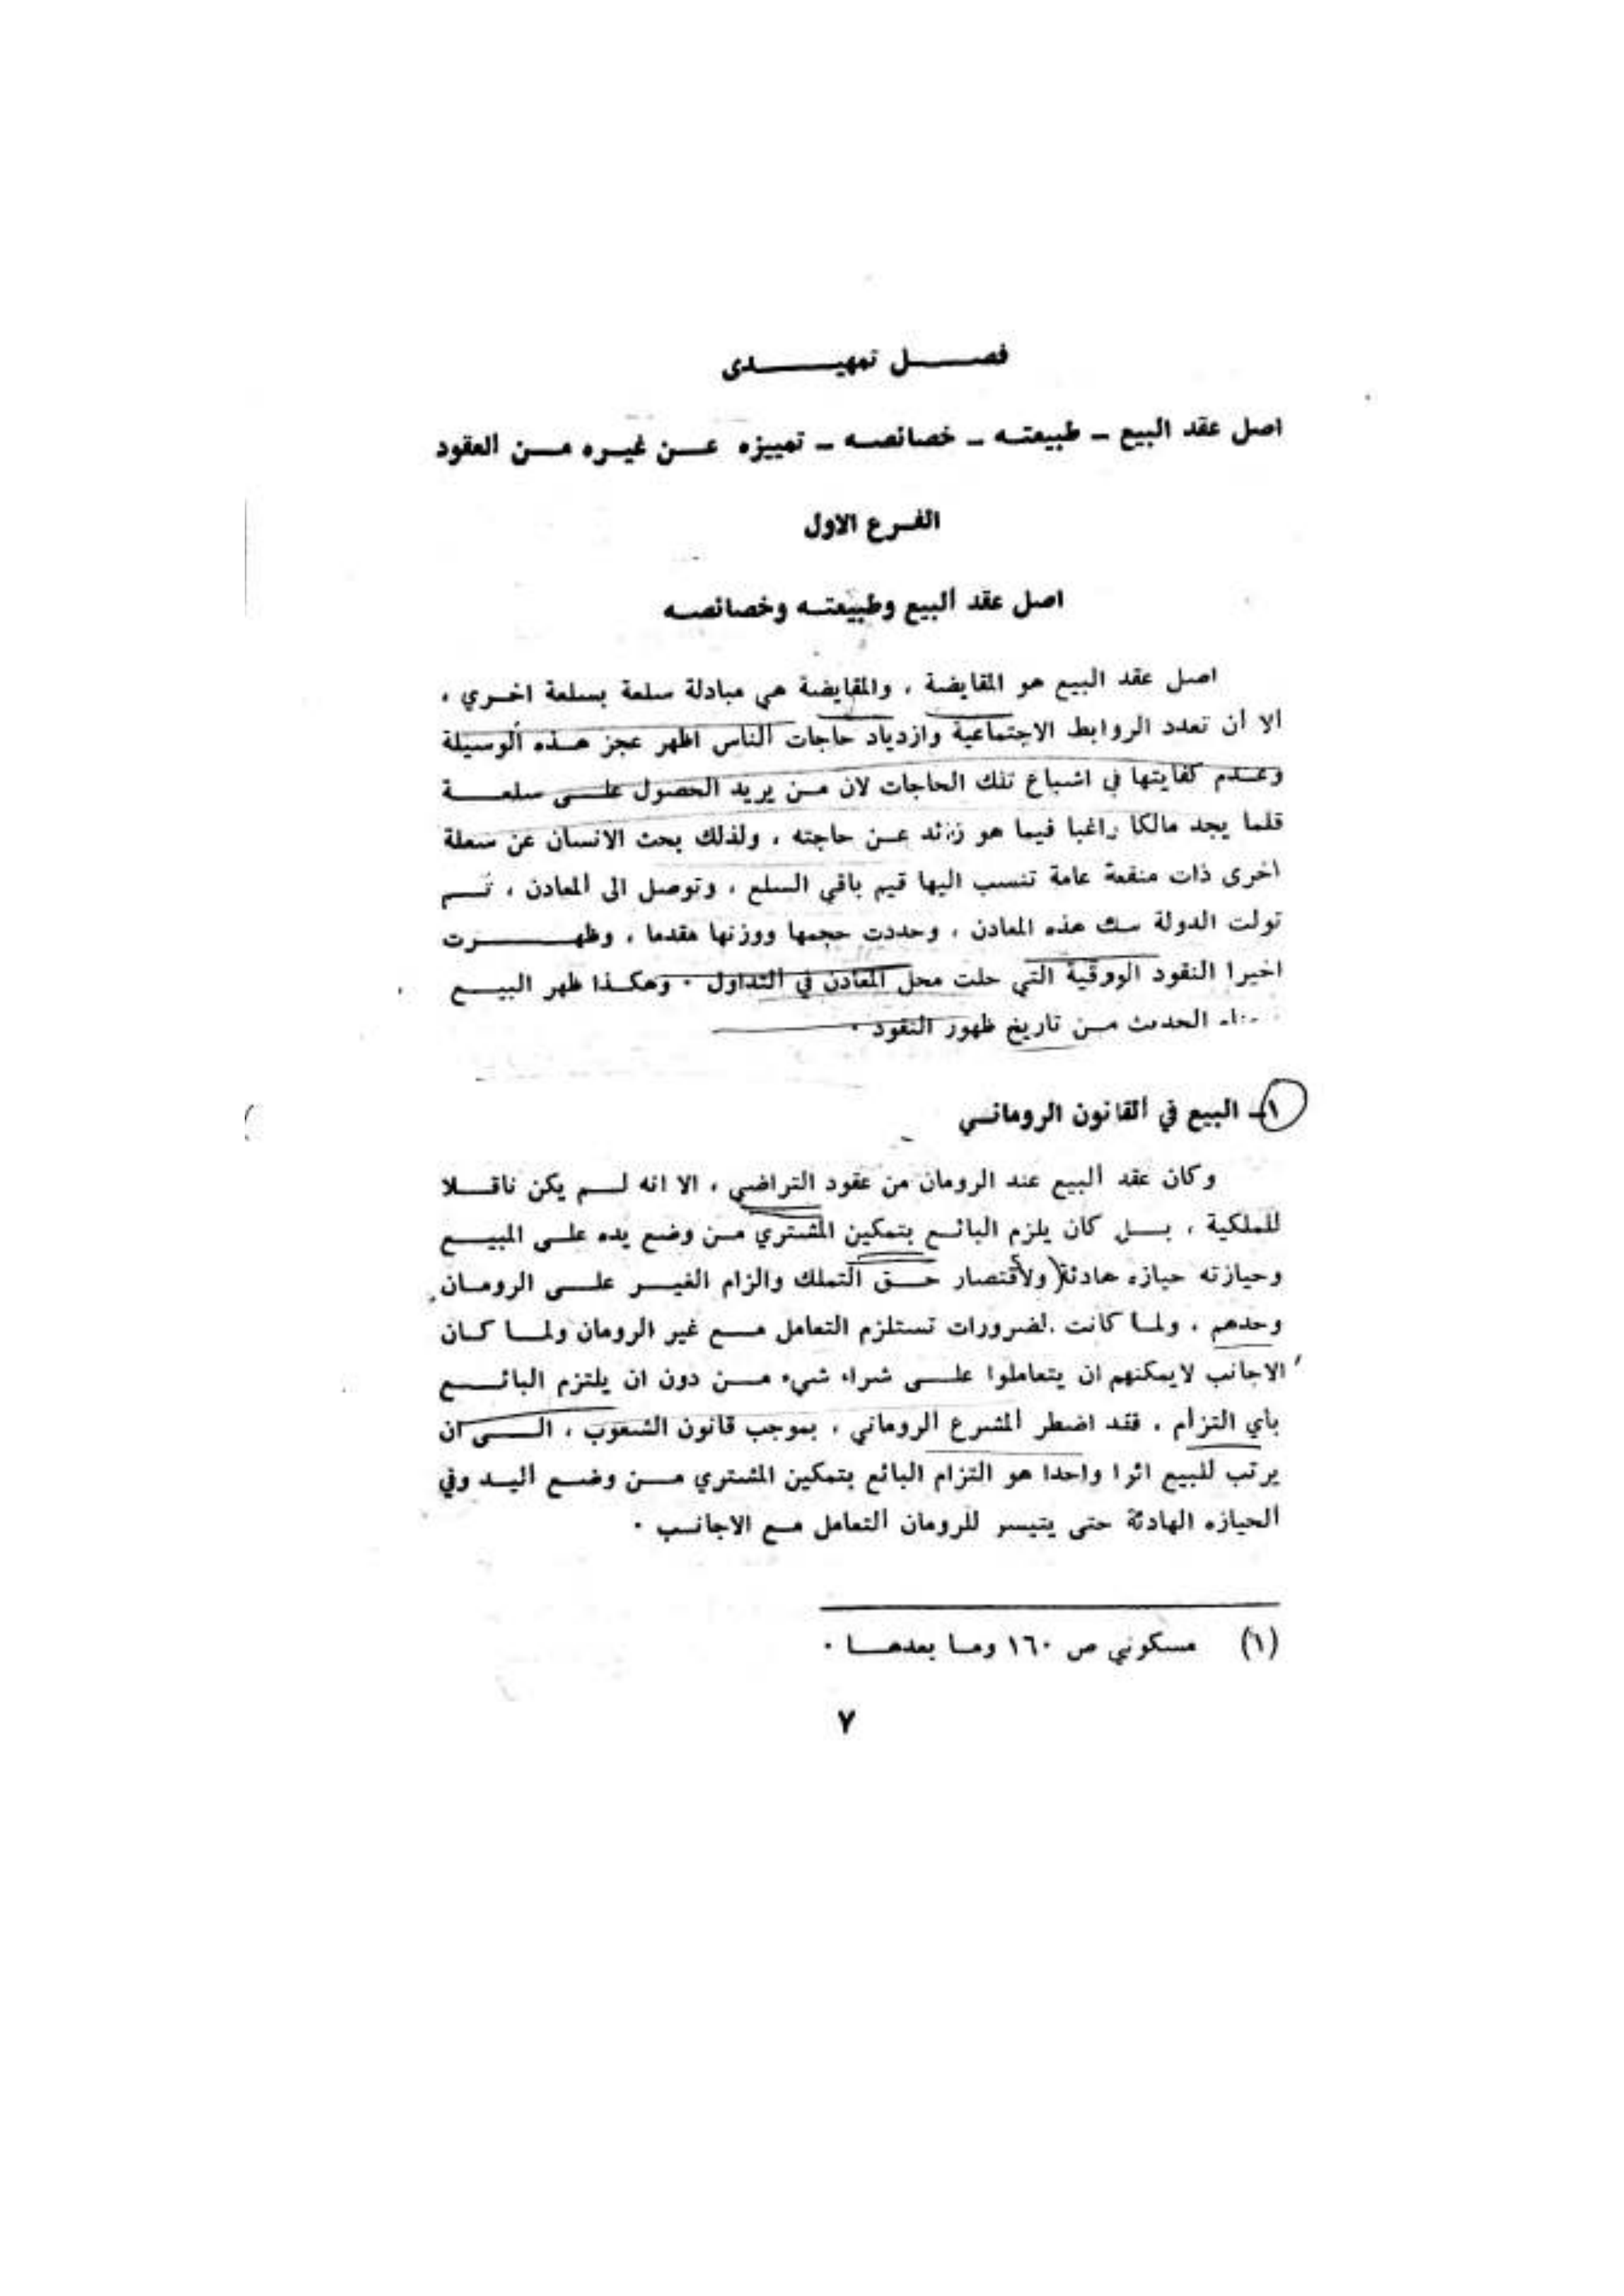 فصل تمهيدى
اصل عقد البيع – طبيعته – خصائصه – تمييزه عن غيره من العقود
الفرع الاول
اصل عقد البيع وطبيعته وخصائصه
اصل عقد البيع هو المقايضة ، والمقايضة هي مبادلة سلعة بسلعة اخري ،
الا أن تعدد الروابط الاجتماعية وازدياد حاجات الناس اظهر عجز هذه الوسيلة
وعدم كفايتها في اشباع تلك الحاجات لان من يريد الحصول على سلعة
قلما يجد مالكا راغبا فيما هو زائد عن حاجته ، ولذلك بحث الانسان عن سعلة
اخرى ذات منفعة عامة تنسب اليها قيم باقي السلع ، وتوصل الى المعادن ، ثم
تولت الدولة سك هذه المعادن ، وحددت حجمها ووزنها مقدما ، وظهرت
اخيرا النقود الورقية التي حلت محل المعادن في التداول . وهكذا ظهر البيع
الحديث من تاريخ ظهور النقود .
١ـ البيع في القانون الروماني
وكان عقد البيع عند الرومان من عقود التراضي ، الا انه لم يكن ناقلا
للملكية ، بل كان يلزم البائع بتمكين المشتري من وضع يده على المبيع
وحيازته حيازه هادئة( ولاقتصار حق التملك والزام الغير على الرومان
وحدهم ، ولما كانت لضرورات تستلزم التعامل مع غير الرومان ولما كان
الاجانب لايمكنهم ان يتعاملوا على شراء شيء من دون ان يلتزم البائع
بأي التزام . فقد اضطر المشرع الروماني ، بموجب قانون الشعوب ، الى ان
يرتب للبيع اثرا واحدا هو التزام البائع بتمكين المشتري من وضع اليد وفي
الحيازه الهادئة حتى يتيسر للرومان التعامل مع الاجانب .
(١) مسكوني ص ١٦٠ وما بعدها .
٧